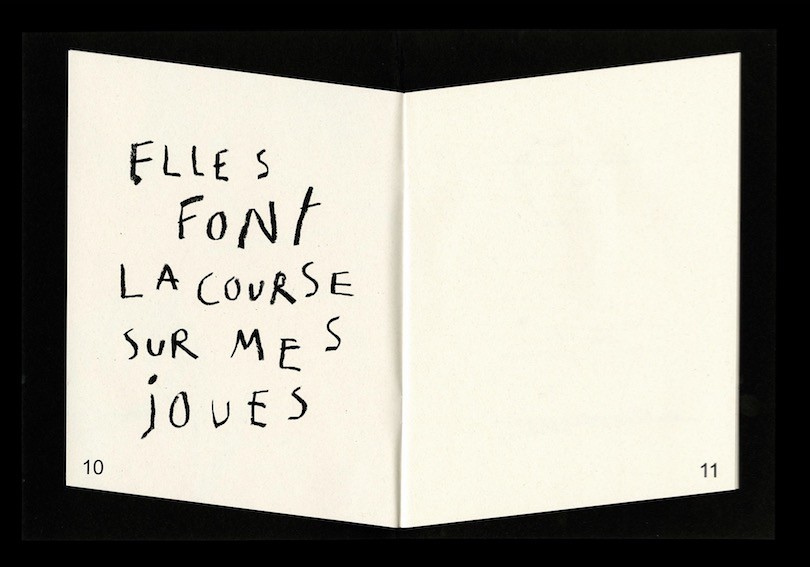 ELLES
FONT
LA COURSE
SUR MES
JOUES
10
11